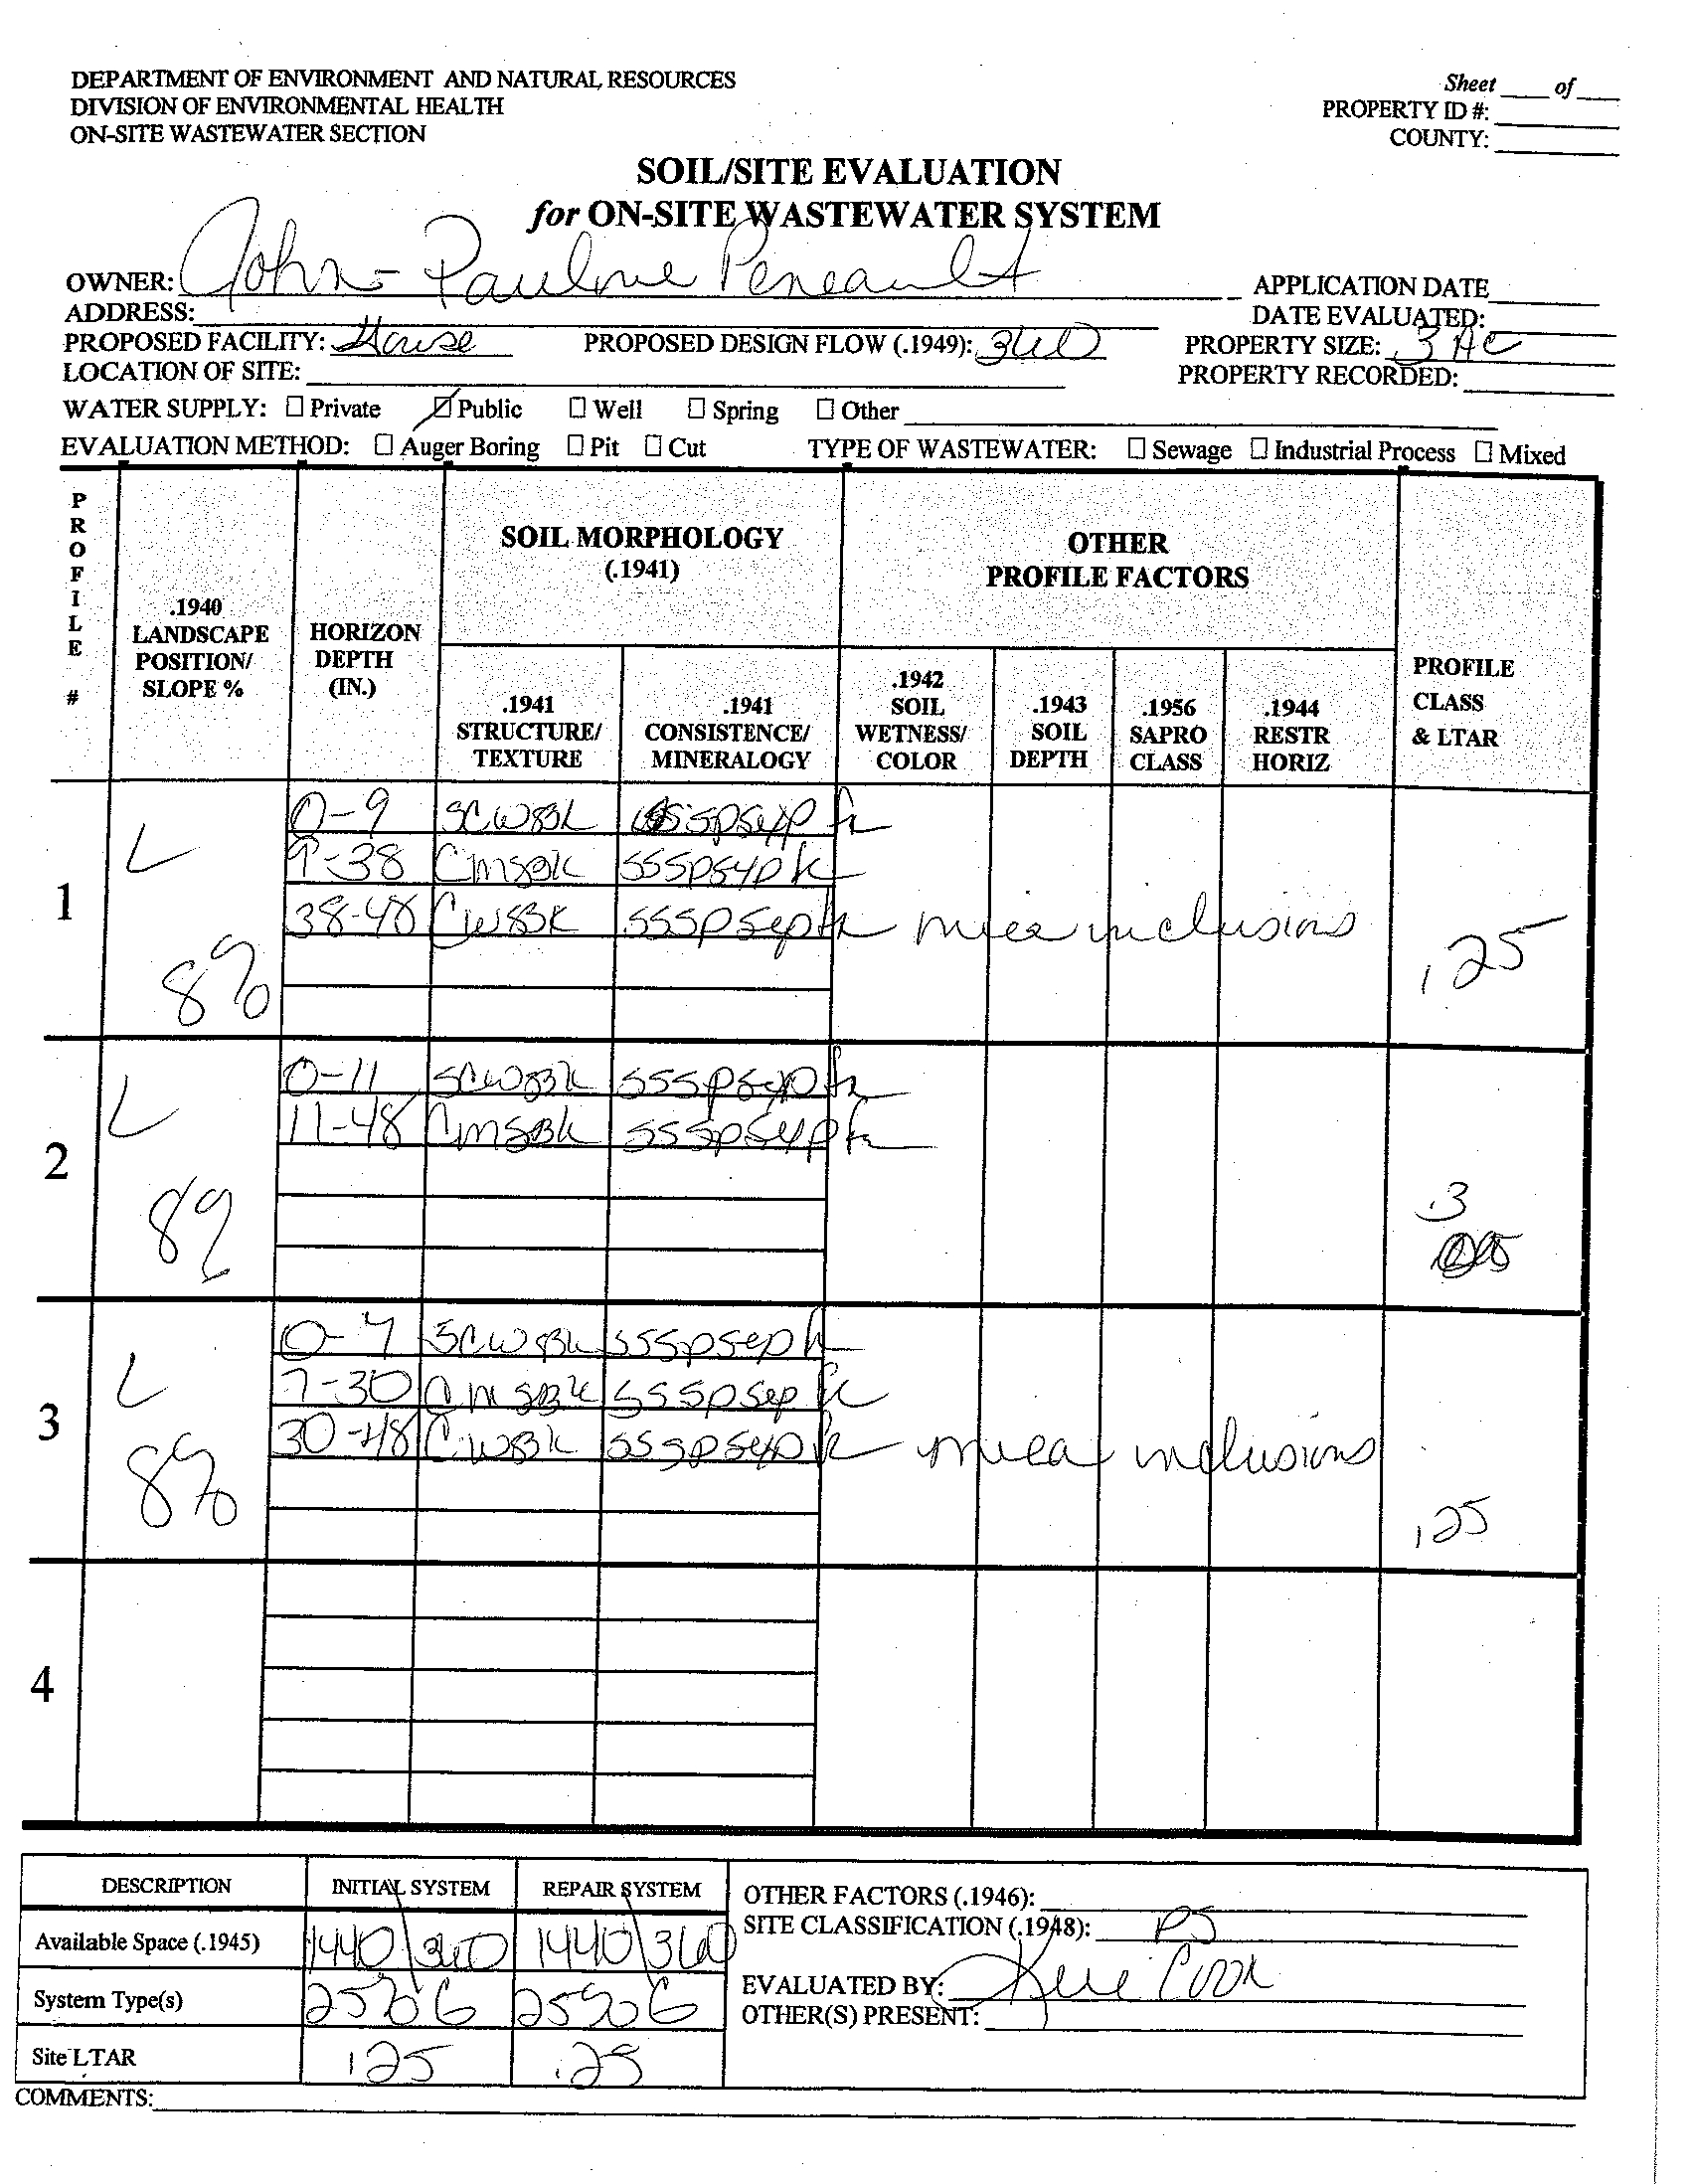 DEPARTMENT OF ENVIRONMENT AND NATURAL RESOURCES
DIVISION OF ENVIRONMENTAL HEALTH
ON-SITE WASTEWATER SECTION
Sheet ____ of ____
PROPERTY ID #:
COUNTY:
SOIL/SITE EVALUATION
for ON-SITE WASTEWATER SYSTEM
OWNER: John - Pauline Peneault
APPLICATION DATE
ADDRESS:
DATE EVALUATED:
PROPOSED FACILITY: House PROPOSED DESIGN FLOW (.1949): 360 PROPERTY SIZE: .3 Ac
LOCATION OF SITE: PROPERTY RECORDED:
WATER SUPPLY: ☐ Private ☑ Public ☐ Well ☐ Spring ☐ Other
EVALUATION METHOD: ☐ Auger Boring ☐ Pit ☐ Cut TYPE OF WASTEWATER: ☐ Sewage ☐ Industrial Process ☐ Mixed
PROFILE #
.1940 LANDSCAPE POSITION/ SLOPE %
HORIZON DEPTH (IN.)
SOIL MORPHOLOGY (.1941)
OTHER PROFILE FACTORS
.1941 STRUCTURE/ TEXTURE
.1941 CONSISTENCE/ MINERALOGY
.1942 SOIL WETNESS/ COLOR
.1943 SOIL DEPTH
.1956 SAPRO CLASS
.1944 RESTR HORIZ
PROFILE CLASS & LTAR
1 L 8%
0-9 SCWSBK SSSPSEXP fr
9-38 CMSBK SSSPSEXP fr
38-48 CWSBK SSSPSEXP fr mica inclusions
.25
2 L 8%
0-11 SCWSBK SSSPSEXP fr
11-48 CMSBK SSSPSEXP fr
.3
3 L 8%
0-7 SCWSBK SSSPSEXP fr
7-30 CMSBK SSSPSEXP fr
30-48 CWSBK SSSPSEXP fr mica inclusions
.25
4
DESCRIPTION INITIAL SYSTEM REPAIR SYSTEM
Available Space (.1945) 1440\360 1440\360
System Type(s) 25% G 25% G
Site LTAR .25 .25
OTHER FACTORS (.1946):
SITE CLASSIFICATION (.1948): PS
EVALUATED BY: Cook
OTHER(S) PRESENT:
COMMENTS: